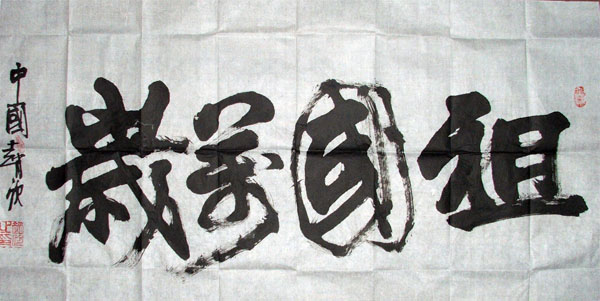 祖國萬歲
中國